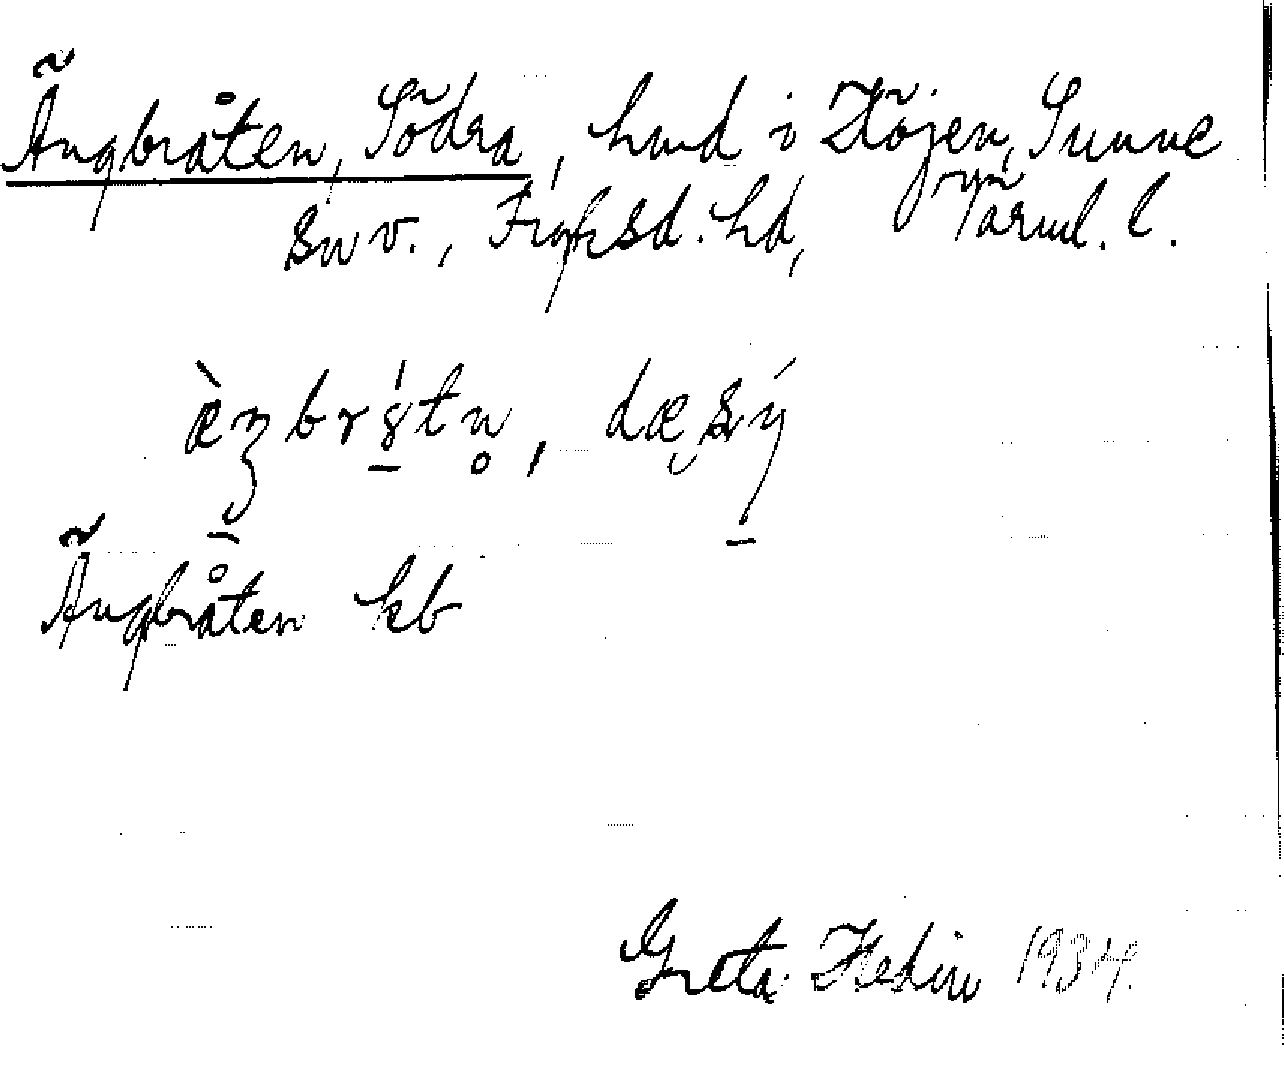 Ängbråten, Södra, hmd i Höjen, Sunne
snv., Fryksd. hd, Värml. l.
Ängbråten kb
Greta Hedin 1934.